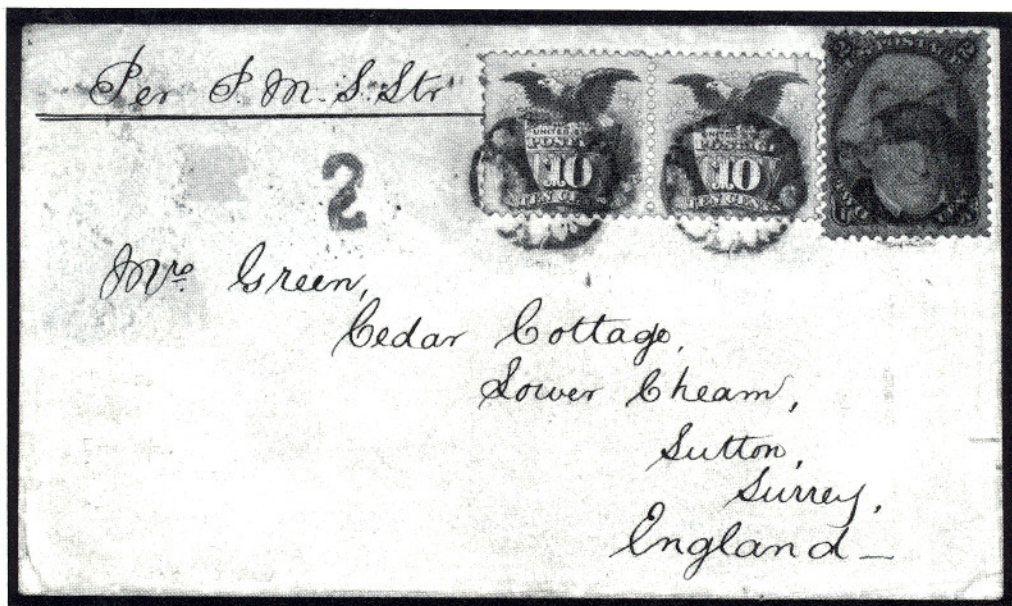 Per P. M. S. Str
UNITED STATES
POSTAGE
10
TEN CENTS
UNITED STATES
POSTAGE
10
TEN CENTS
2 2
2
Mrs. Green,
Cedar Cottage,
Lower Cheam,
Sutton,
Surrey,
England